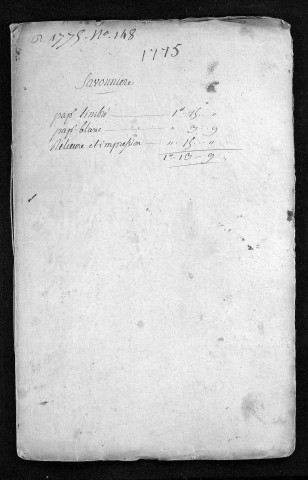 1775. No. 148
1775
Savonniere
papr timbré — 1# 15 "
papr blanc — " 3 - 9
Relieure et impression — " 15 - "
1# - 13 - 9